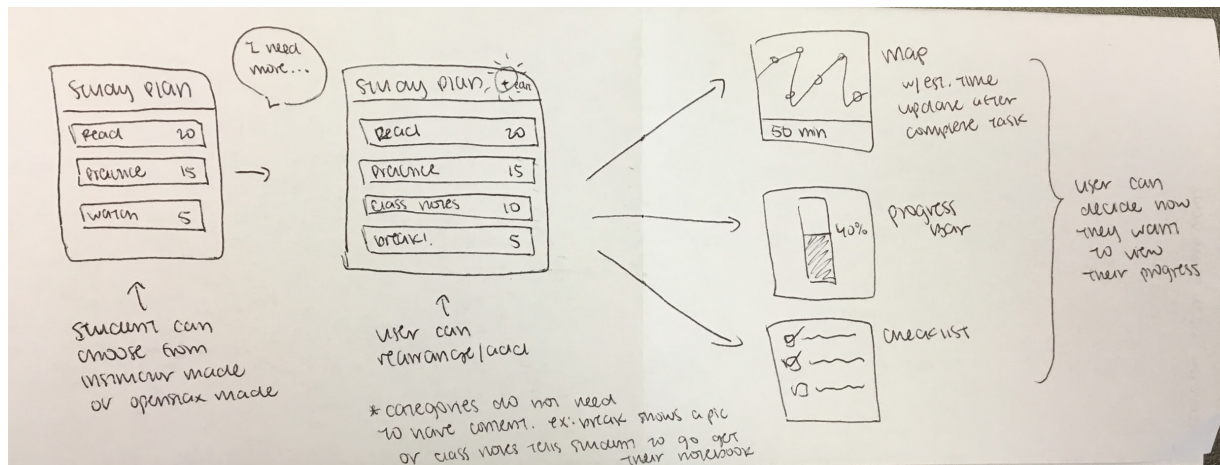 Study plan
Read 20
Practice 15
Watch 5
Student can
choose from
instructor made
or openstax made
I need
more...
Study plan
Read 20
Practice 15
class notes 10
break! 5
user can
rearrange/add
*categories do not need
to have content. ex: break shows a pic
or class notes tells student to go get
their notebook
50 min
map
w/est. time
update after
complete task
40%
progress
bar
checklist
user can
decide how
they want
to view
their progress